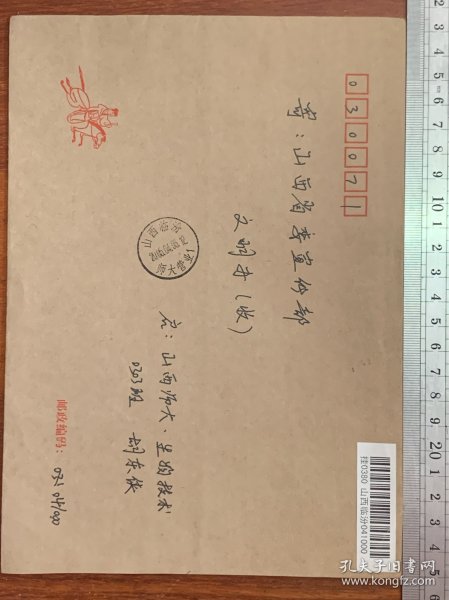 030071
寄：山西省委宣传部
文明办（收）
山西临汾
师大营(所)1
石：山西师大、生物技术
0303班 胡东侠
邮政编码：
041000
挂0380 山西临汾041000
孔夫子旧书网
www.kongfz.com
1 2 3 4 5 6 7 8 9 10 1 2 3 4 5 6 7 8 9 20 1 2